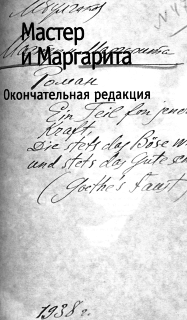 М. Булгаков
Мастер
и Маргарита
Мастер и Маргарита
Роман
Окончательная редакция
Ein Teil von jener
Kraft,
Die stets das Böse w
und stets das Gute sc
(Goethe's Faust)
1938 г.